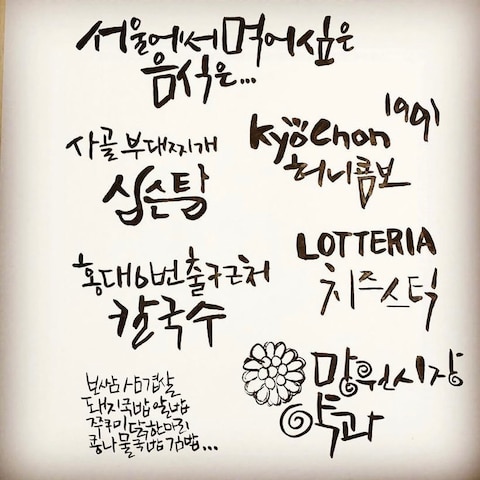 서울에서 먹어 싶은
음식은...
사골 부대찌개
심슨탕
Kyochon 1991
허니콤보
홍대 6번 출구 근처
칼국수
LOTTERIA
치즈스틱
망원시장
약과
보쌈 삼겹살
돼지국밥 알밥
쭈꾸미 닭한마리
콩나물국밥 김밥...